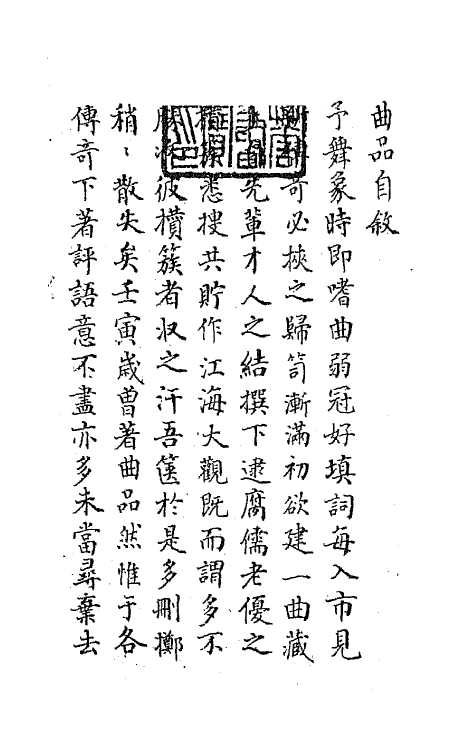 曲品自敘
予舞象時即嗜曲弱冠好填詞每入市見
奇必挾之歸笥漸滿初欲建一曲藏
先輩才人之結撰下逮腐儒老優之
悉搜共貯作江海大觀既而謂多不
彼攢簇者收之汗吾篋於是多刪擲
稍〻散失矣壬寅歲曾著曲品然惟于各
傳奇下著評語意不盡亦多未當尋棄去